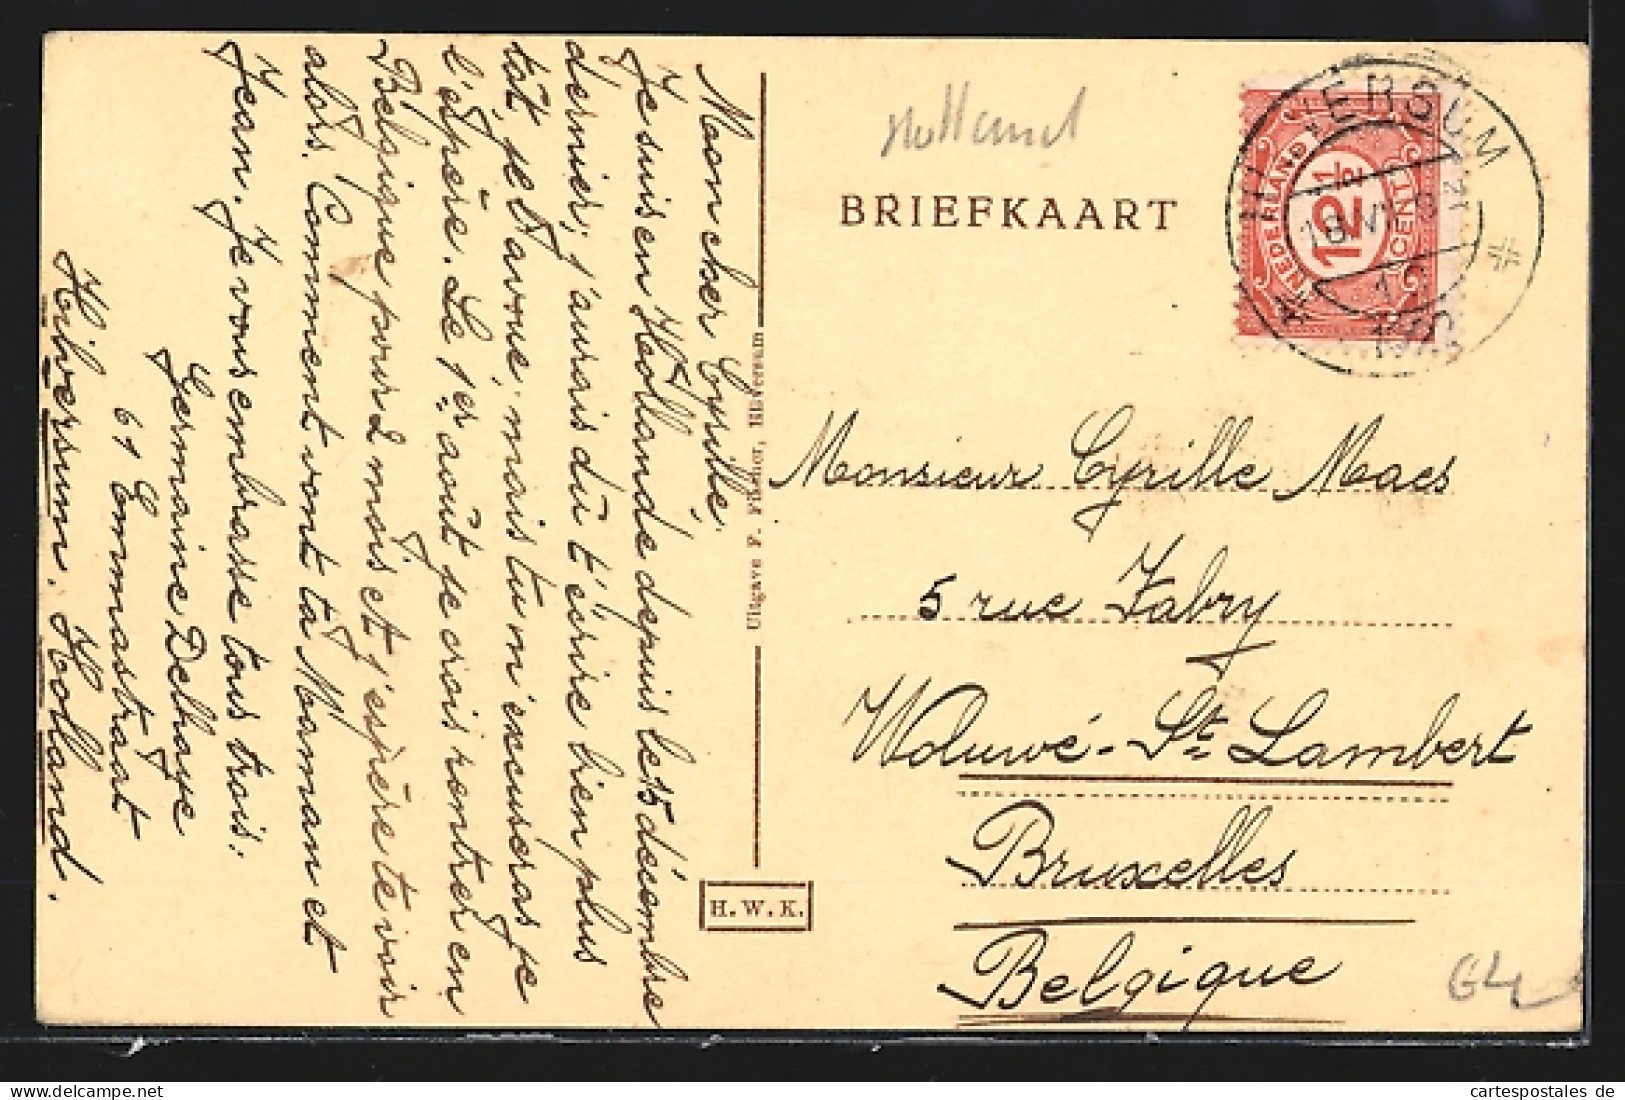 Mon cher Cyrille,
Je suis en Hollande depuis le 15 décembre
dernier, j'aurais dû t'écrire bien plus
tôt, je l'avoue, mais tu m'excuseras je
l'espère. Le 1er août je crois rentrer en
Belgique pour 2 mois et j'espère te voir
alors. Comment vont ta Maman et
Jean. Je vous embrasse tous trois.
Germaine Delhaye
61 Emmastraat
Hilversum. Holland.
Uitgave F. Fischer, Hilversum
H. W. K.
Holland
BRIEFKAART
NEDERLAND
12½
CENT
HILVERSUM
Monsieur Cyrille Maes
5 rue Fabry
Woluwé-St Lambert
Bruxelles
Belgique
64
cartespostales de